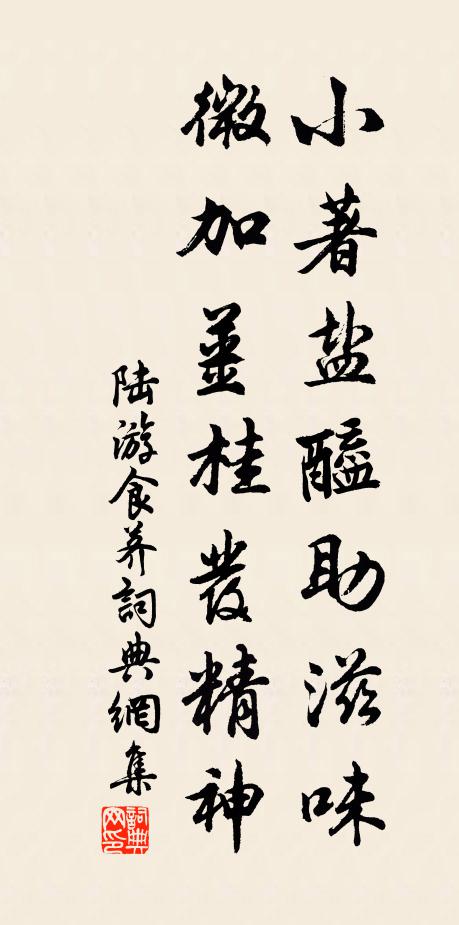 小著盐醯助滋味
微加薑桂發精神
陆游食荠詞典網集
詞典网印